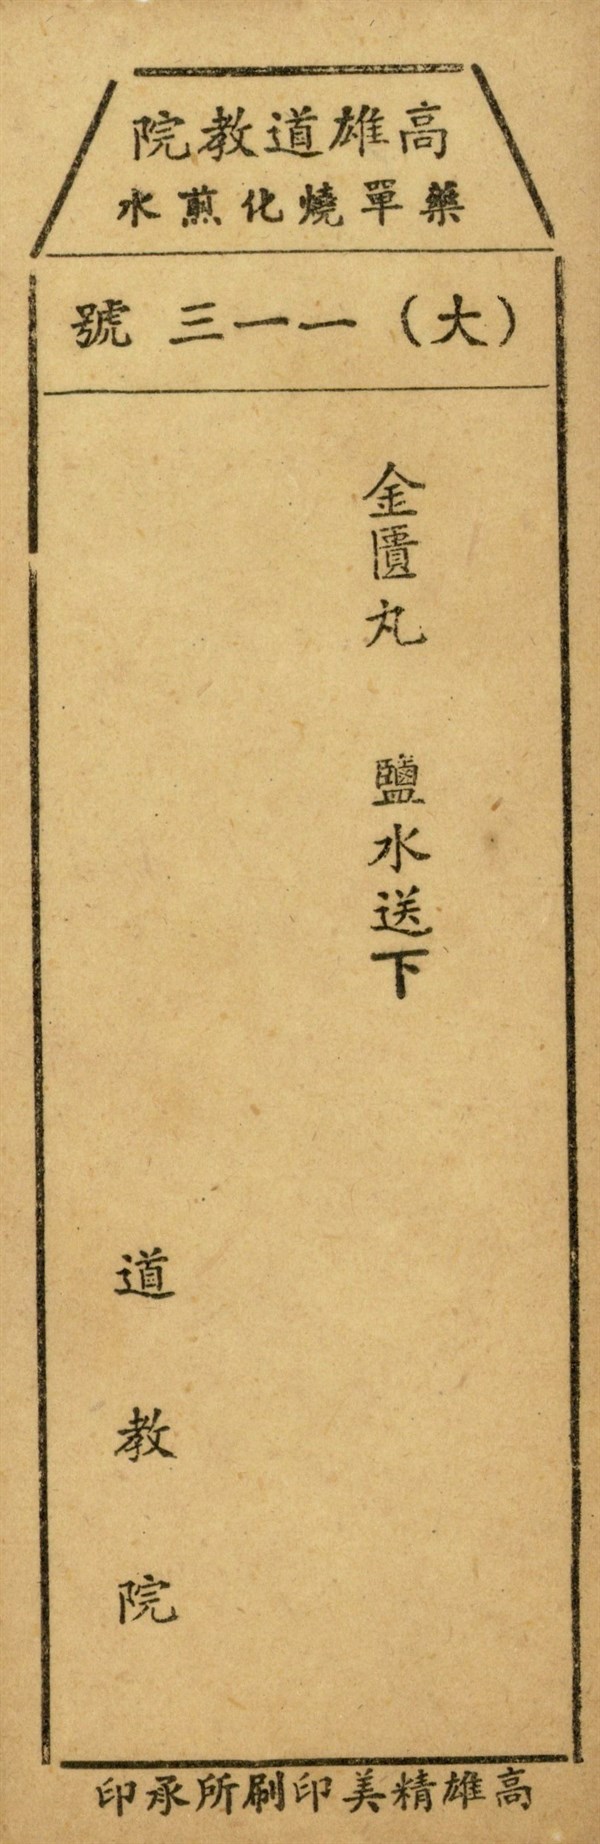 高雄道教院
藥單燒化煎水
(大)一一三號
金匱丸 鹽水送下
道教院
高雄精美印刷所承印